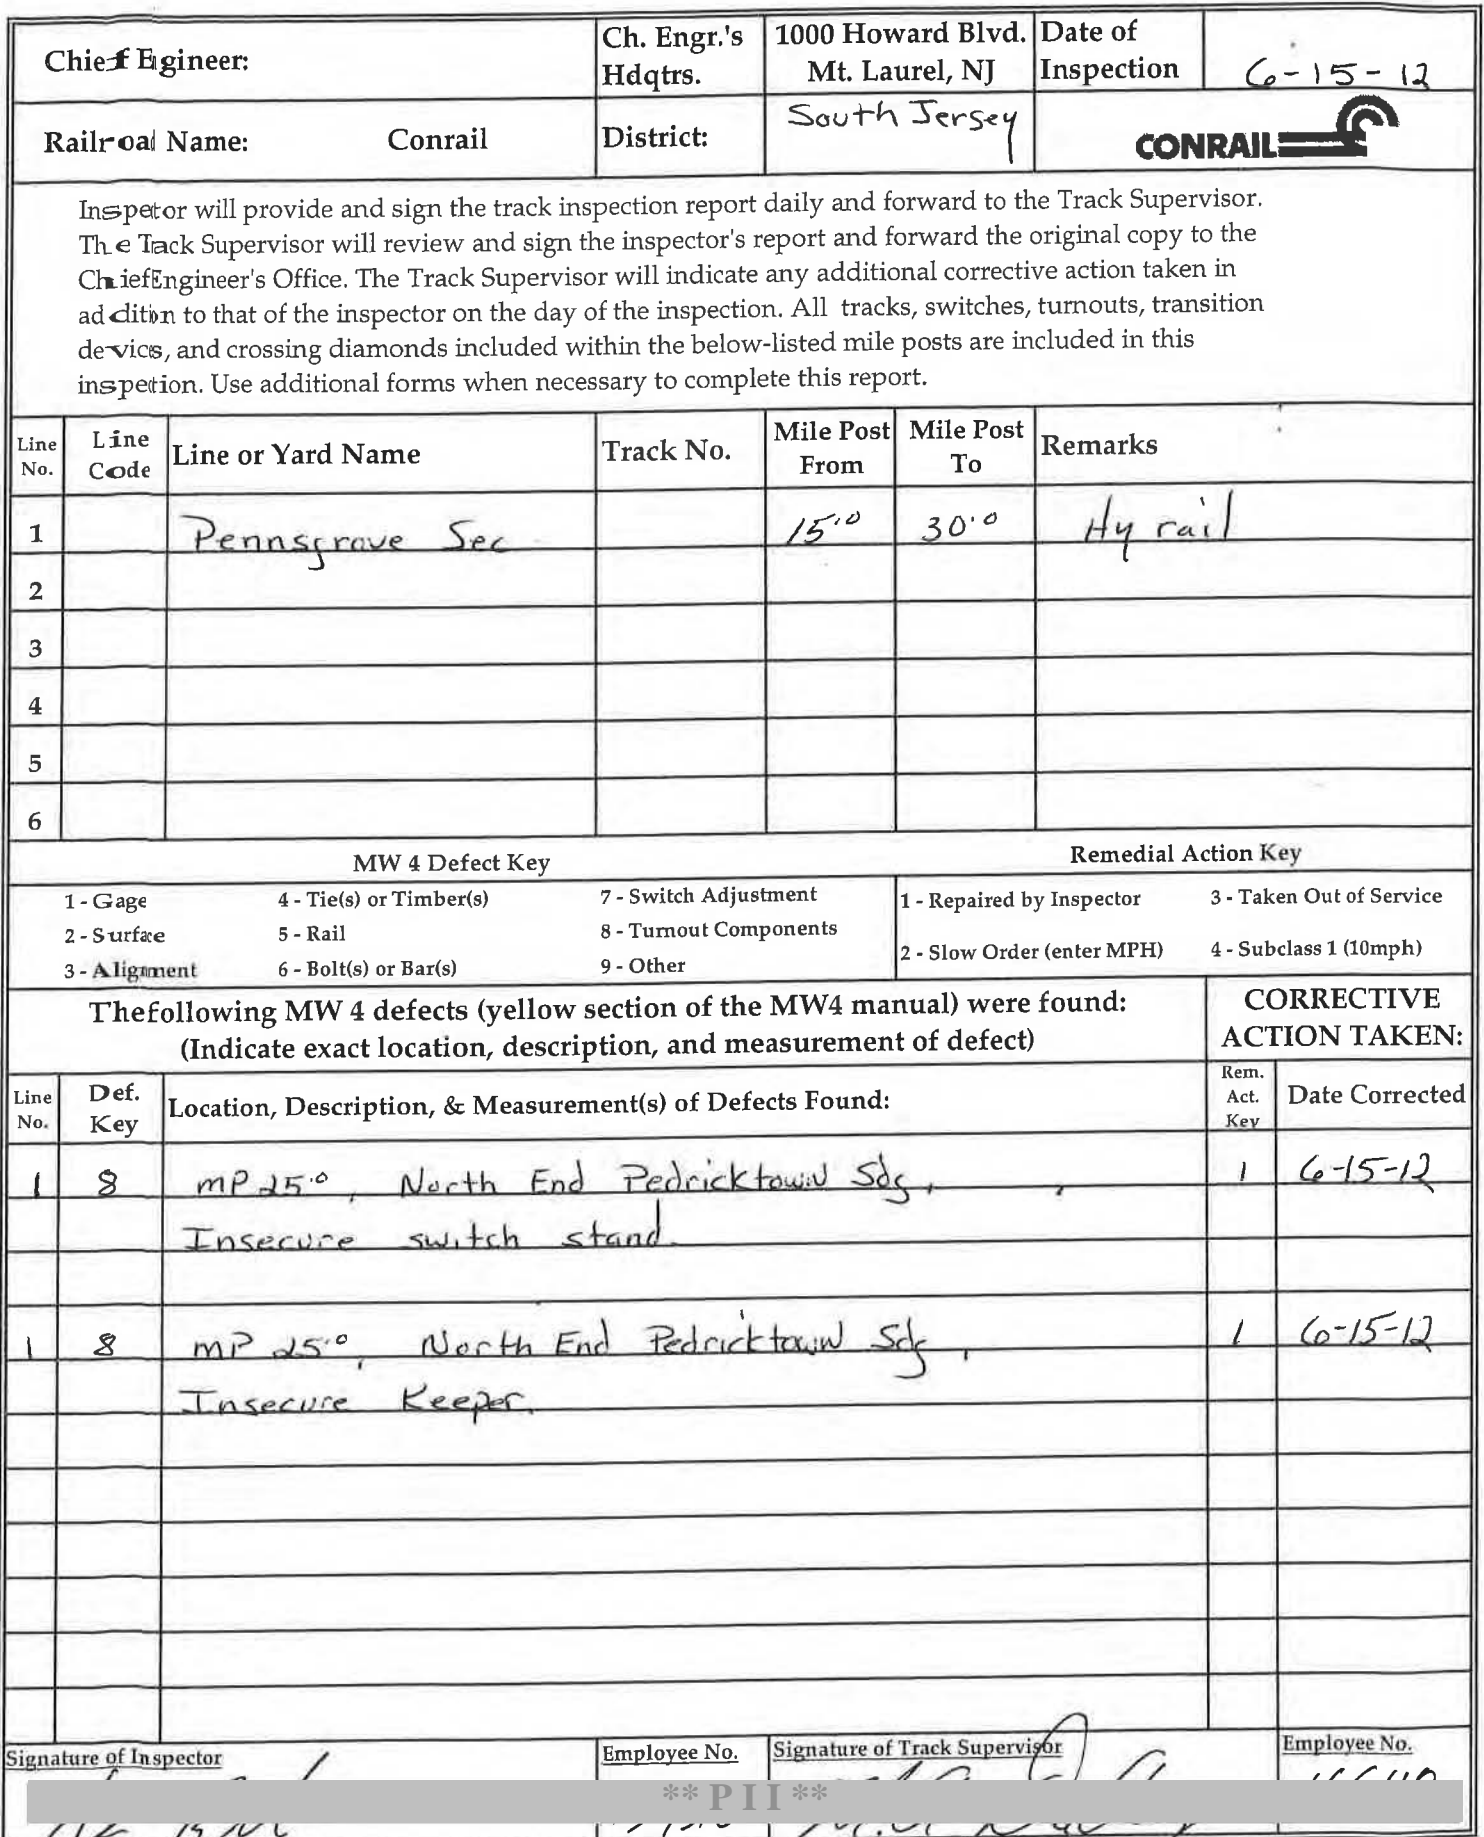 Chief Engineer:
Ch. Engr.'s
Hdqtrs.
1000 Howard Blvd.
Mt. Laurel, NJ
Date of
Inspection
6-15-12
Railroad Name: Conrail
District:
South Jersey
CONRAIL
Inspector will provide and sign the track inspection report daily and forward to the Track Supervisor.
The Track Supervisor will review and sign the inspector's report and forward the original copy to the
Chief Engineer's Office. The Track Supervisor will indicate any additional corrective action taken in
addition to that of the inspector on the day of the inspection. All tracks, switches, turnouts, transition
devices, and crossing diamonds included within the below-listed mile posts are included in this
inspection. Use additional forms when necessary to complete this report.
Line No. Line Code Line or Yard Name Track No. Mile Post From Mile Post To Remarks
1 Pennsgrove Sec 15.0 30.0 Hy rail
2
3
4
5
6
MW 4 Defect Key Remedial Action Key
1 - Gage 4 - Tie(s) or Timber(s) 7 - Switch Adjustment 1 - Repaired by Inspector 3 - Taken Out of Service
2 - Surface 5 - Rail 8 - Turnout Components
2 - Slow Order (enter MPH) 4 - Subclass 1 (10mph)
3 - Alignment 6 - Bolt(s) or Bar(s) 9 - Other
The following MW 4 defects (yellow section of the MW4 manual) were found:
(Indicate exact location, description, and measurement of defect)
CORRECTIVE
ACTION TAKEN:
Line No. Def. Key Location, Description, & Measurement(s) of Defects Found: Rem. Act. Key Date Corrected
1 8 MP 25.0, North End Pedricktown Sdg, 1 6-15-12
Insecure switch stand.
1 8 MP 25.0, North End Pedricktown Sdg, 1 6-15-12
Insecure Keeper.
Signature of Inspector Employee No. Signature of Track Supervisor Employee No.
** P I I **